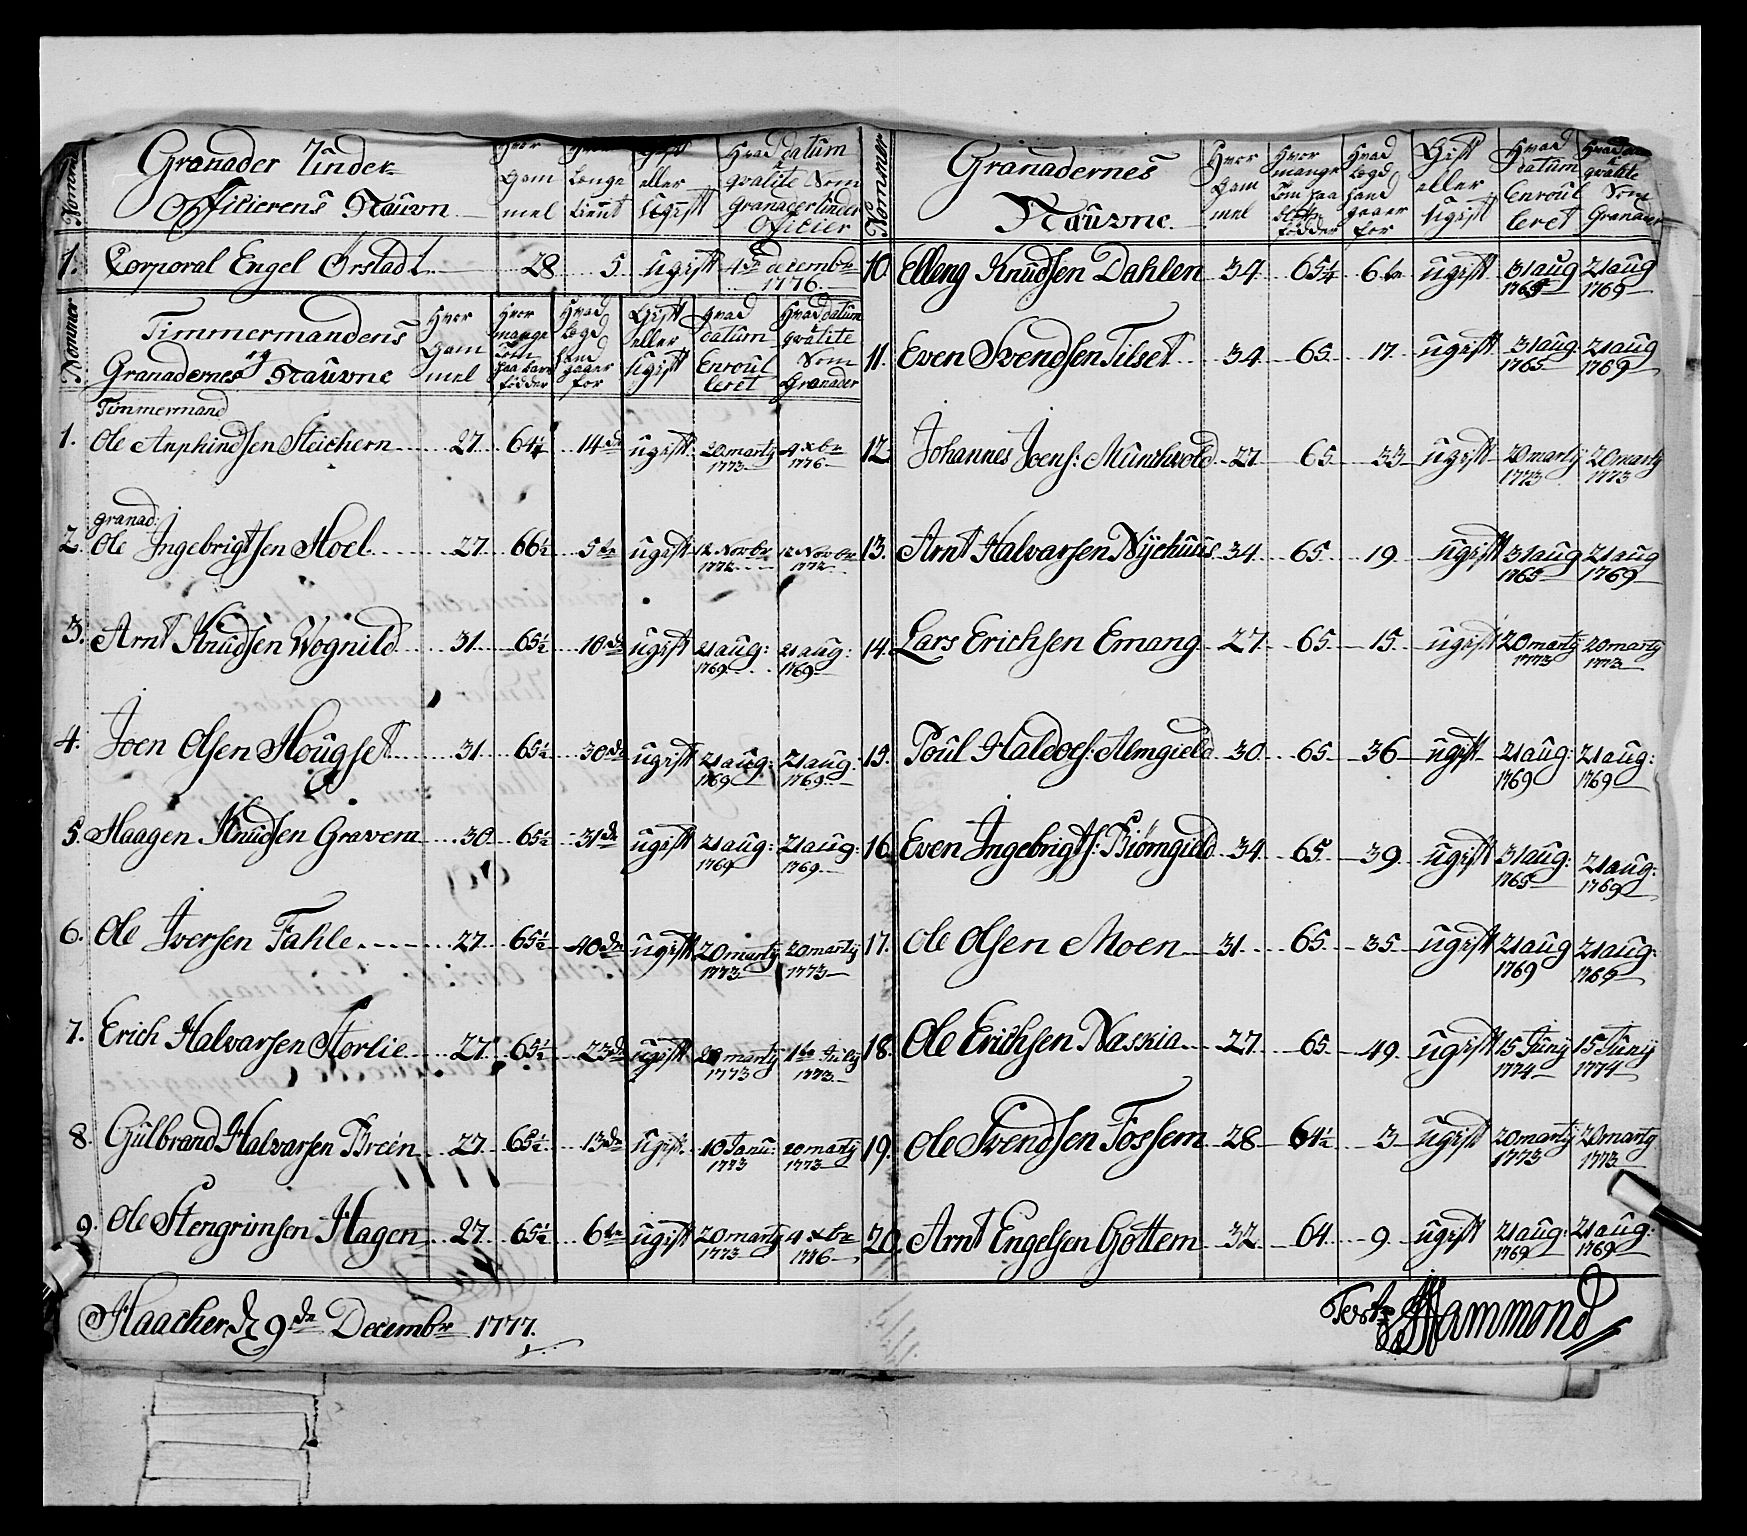 Nommer
Granader Under
Officierens Nauvn
Hvor Gam mel
Længe tient
Gift eller Ugift
Hvad datum qvalite Som granader under Oficier
1. Corporal Engel Ørstadt 28 5 ugift 4de decembr 1776
Nommer
Timmermandens og
Granadernes Nauvne
Hvor Gam mel
Hvor mange Tom paa bare födder
Hvad Legd hand gaaer for
Gift eller Ugift
Hvad datum Enroul leret
Hvad datum qvalite Som Granader
Timmermand
1. Ole Anphindsen Steichern 27 64 1/4 14de ugift 20 marty 1773 4 xbr 1776
granad:
2. Ole Ingebrigtsen Hoel 27 66 1/2 5te ugift 12 Novbr 1772 12 Novbr 1772
3. Arnt Knudsen Wognild 31 65 1/2 10de ugift 21 aug: 1769 21 aug: 1769
4. Joen Olsen Hougset 31 65 1/2 30de ugift 21 aug: 1769 21 aug: 1769
5. Haagen Knudsen Gravem 30 65 1/2 31de ugift 21 aug: 1769 21 aug: 1769
6. Ole Iversen Fahle 27 65 1/2 40de ugift 20 marty 1773 20 marty 1773
7. Erich Halvarsen Storlie 27 65 1/2 23de ugift 20 marty 1773 1te July 1773
8. Gulbrand Halvarsen Breen 27 65 1/2 13de ugift 10 Janu: 1773 20 marty 1773
9. Ole Stengrimsen Hagen 27 65 1/2 6te ugift 20 marty 1773 4 xbr 1776
Haacher d 9de Decembr 1777.
Nommer
Granadernes
Nauvne
Hvor Gam mel
Hvor mange Tom paa födder
Hvad Legd hand gaaer for
Gift eller Ugift
Hvad datum Enroul leret
qvalite Som Granader
10. Elleng Knudsen Dahlen 34 65 1/4 6te ugift 31 aug 1765 21 aug 1769
11. Even Svendsen Tilset 34 65 17 ugift 31 aug 1765 21 aug 1769
12. Johannes Joens: Munkvold 27 65 33 ugift 20 marty 1773 20 marty 1773
13. Arnt Halvarsen Nychuus 34 65 19 ugift 31 aug 1765 21 aug 1769
14. Lars Erichsen Emang 27 65 15 ugift 20 marty 1773 20 marty 1773
15. Poul Haldors: Almgield 30 65 36 ugift 21 aug: 1769 21 aug: 1769
16. Even Ingebrigts: Biörngield 34 65 39 ugift 31 aug: 1765 21 aug: 1769
17. Ole Olsen Moen 31 65 35 ugift 21 aug 1769 21 aug: 1769
18. Ole Erichsen Naskia 27 65 49 ugift 15 Juny 1774 15 Juny 1774
19. Ole Svendsen Fossem 28 64 1/2 3 ugift 20 marty 1773 20 marty 1773
20. Arnt Engelsen Gottem 32 64 9 ugift 21 aug: 1769 21 aug: 1769
Hammond